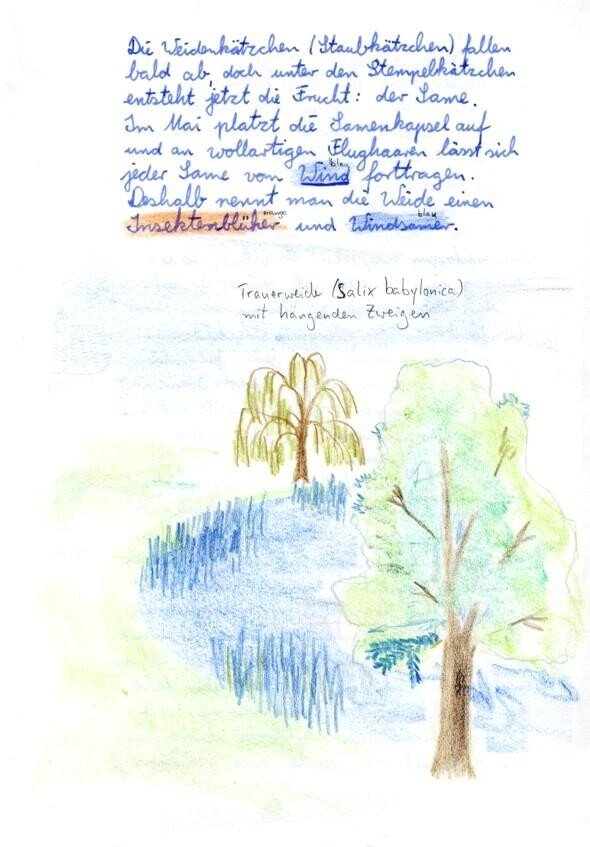 Die Weidenkätzchen (Staubkätzchen) fallen
bald ab, doch unter den Stempelkätzchen
entsteht jetzt die Frucht: der Same.
Im Mai platzt die Samenkapsel auf
und an wollartigen Flughaaren lässt sich
blau
jeder Same vom Wind forttragen.
Deshalb nennt man die Weide einen
orange blau
Insektenblüher und Windsamer.
Trauerweide (Salix babylonica)
mit hängenden Zweigen